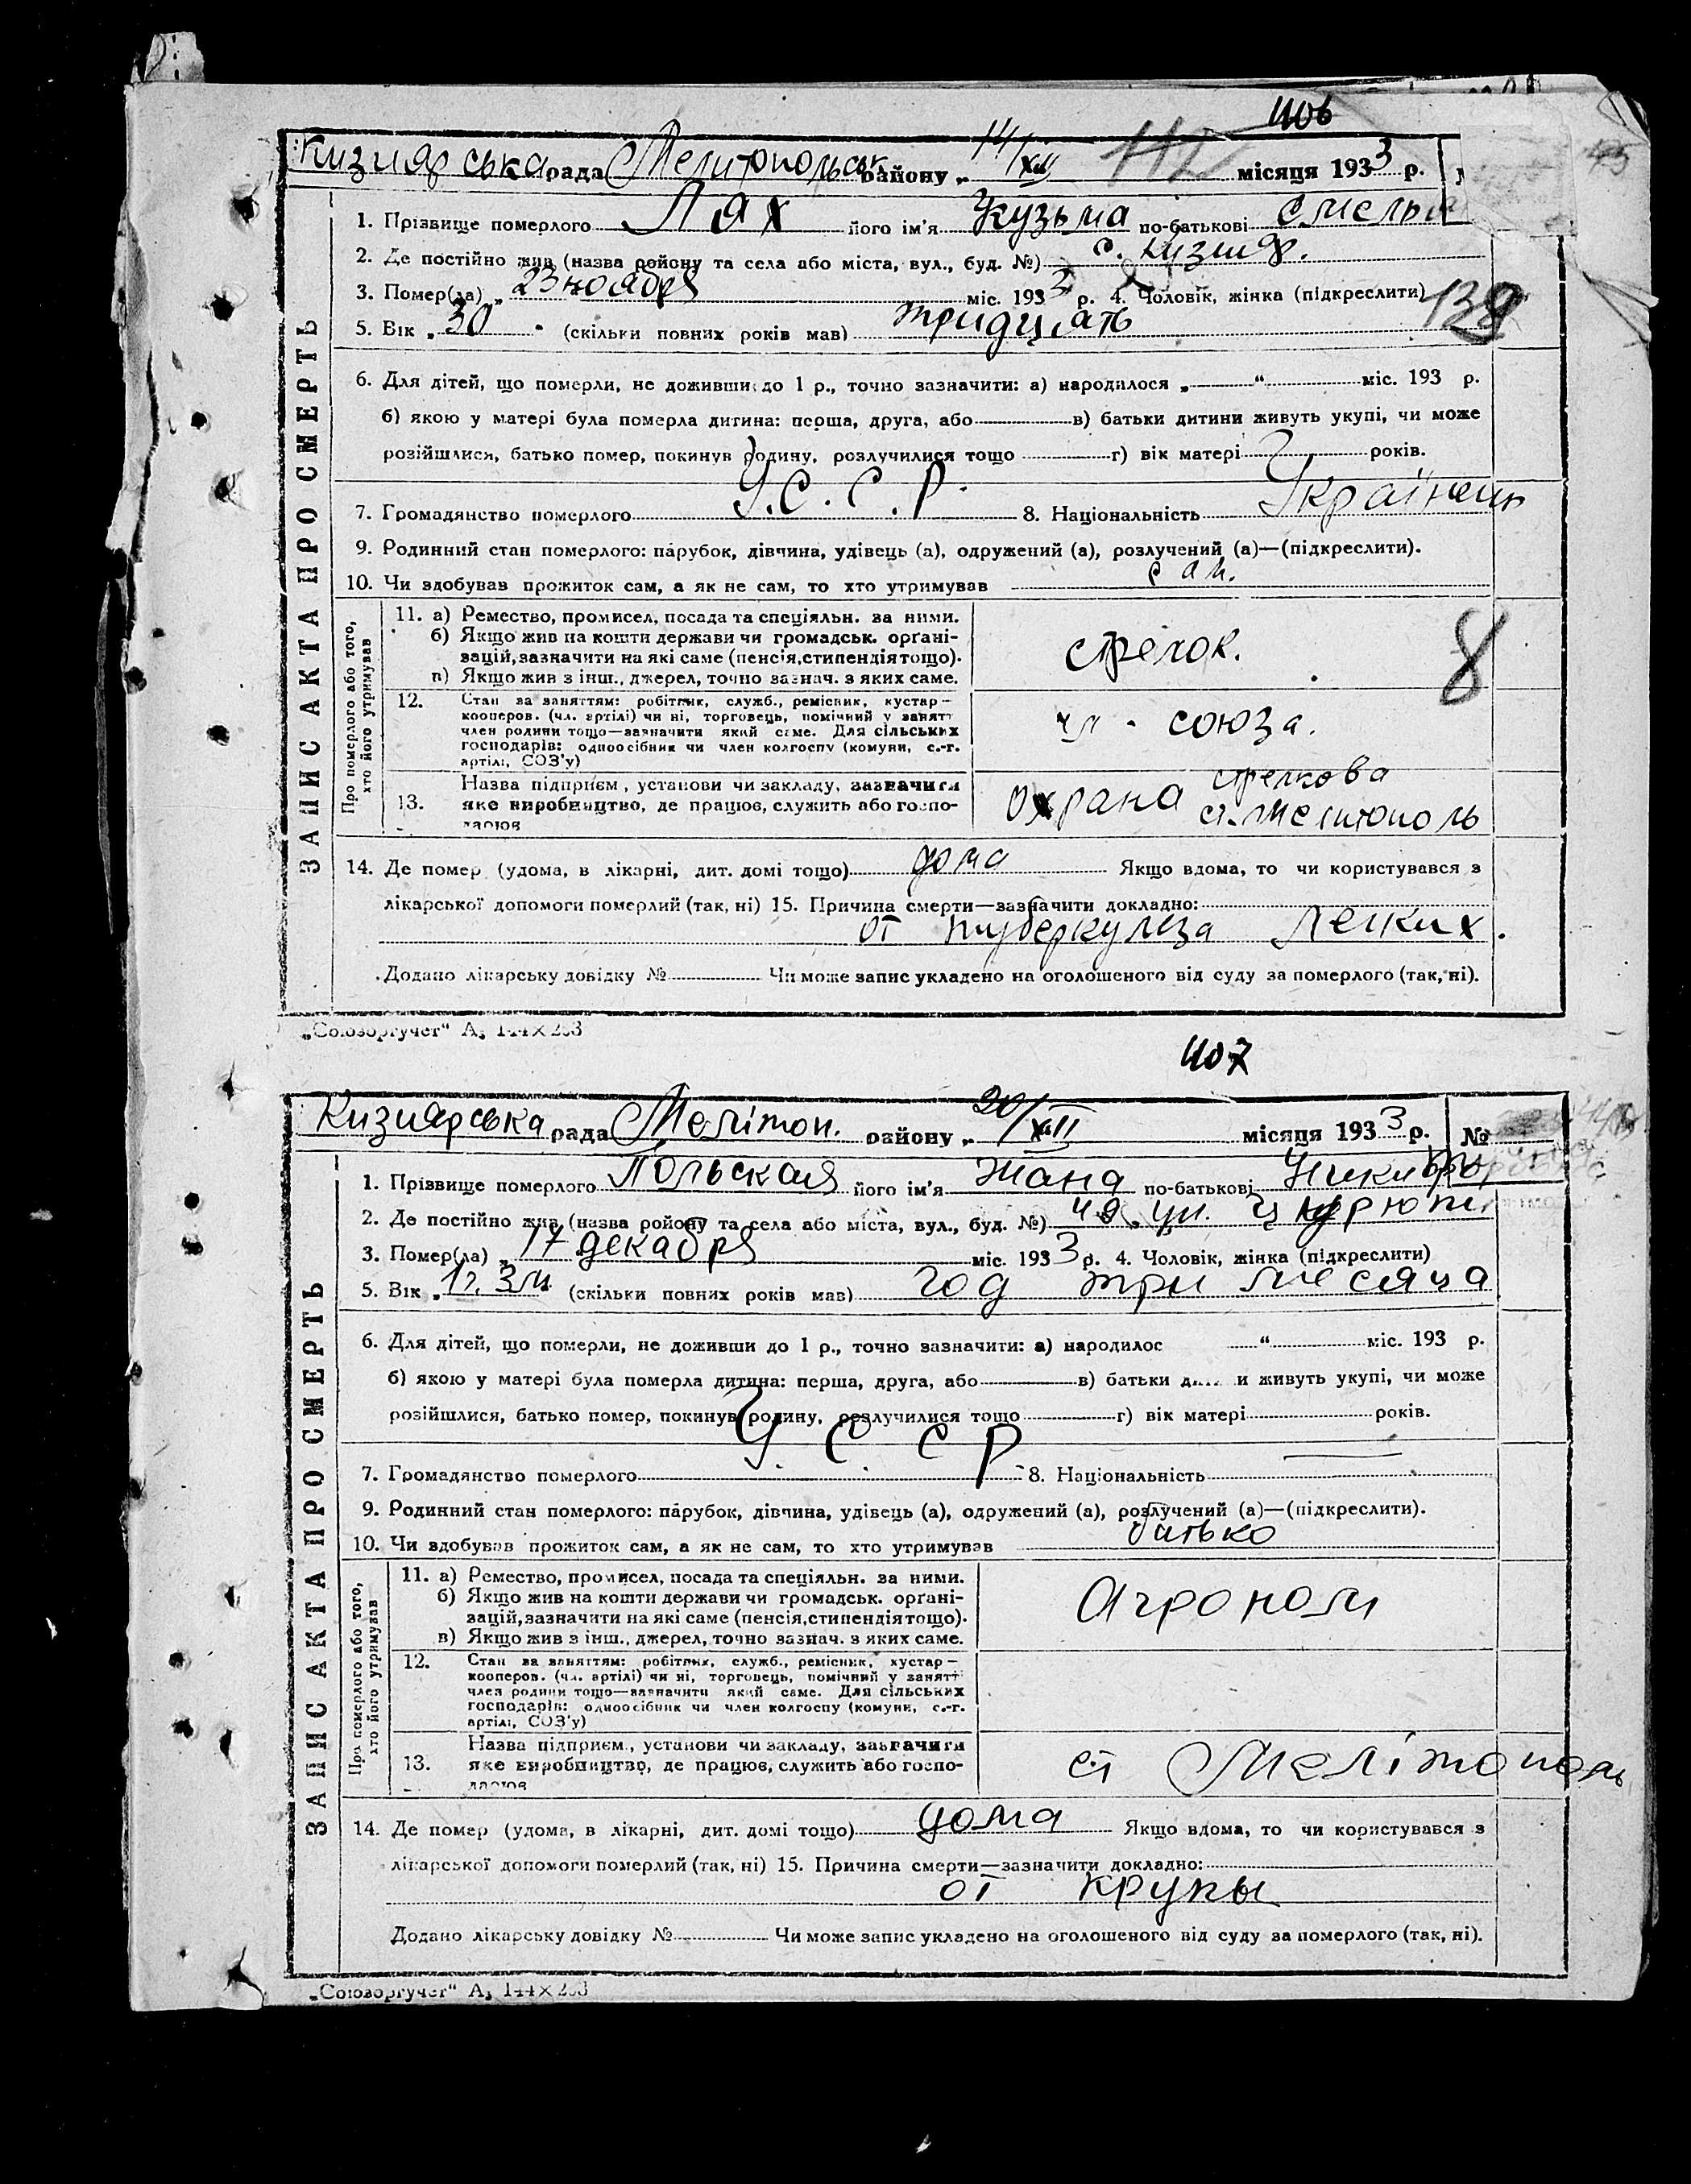 406
Кизиярська рада Мелитопольськ. району „ 14/XII місяця 1933 р.
1. Прізвище померлого Лях його ім'я Кузьма по-батькові
2. Де постійно жив (назва ройону та села або міста, вул., буд. №) с. Кизияр.
3. Помер(ла) „ 23 ноября міс. 1933 р. 4. Чоловік, жінка (підкреслити)
138
5. Вік „ 30 " (скільки повних років мав) тридцать
6. Для дітей, що померли, не доживши до 1 р., точно зазначити: а) народилося „ “ міс. 193 р.
б) якою у матері була померла дитина: перша, друга, або в) батьки дитини живуть укупі, чи може
розійшлися, батько помер, покинув родину, розлучилися тощо г) вік матері років.
7. Громадянство померлого У.С.С.Р. 8. Національність Українець
9. Родинний стан померлого: парубок, дівчина, удівець (а), одружений (а), розлучений (а)—(підкреслити).
10. Чи здобував прожиток сам, а як не сам, то хто утримував сам.
ЗАПИС АКТА ПРО СМЕРТЬ
Про померлого або того, хто його утримував
11. а) Ремество, промисел, посада та спеціяльн. за ними.
б) Якщо жив на кошти держави чи громадськ. орґані-
зацій, зазначити на які саме (пенсія, стипендія тощо).
в) Якщо жив з інш., джерел, точно зазнач. з яких саме.
стрелок.
8
12. Стан за заняттям: робітник, служб., ремісник, кустар—
кооперов. (чл. артілі) чи ні, торговець, помічний у занятт
член родини тощо—зазначити який саме. Для сільських
господарів: одноосібник чи член колгоспу (комуни, с.-г.
артілі, СОЗ'у)
чл. союза.
13. Назва підприєм., установи чи закладу, зазначити
яке виробництво, де працює, служить або госпо-
дарює
охрана стрелкова
ст. Мелитополь
14. Де помер (удома, в лікарні, дит. домі тощо) дома Якщо вдома, то чи користувався з
лікарської допомоги померлий (так, ні) 15. Причина смерти—зазначити докладно:
от туберкулеза легких.
Додано лікарську довідку № Чи може запис укладено на оголошеного від суду за померлого (так, ні).
„Союзоргучет“ А₅ 144×203
407
Кизиярська рада Мелітоп. району „ 20/XII місяця 1933 р. №
1. Прізвище померлого Польская його ім'я Жана по-батькові
2. Де постійно жив (назва ройону та села або міста, вул., буд. №) ул. Цюрюпи
3. Помер(ла) „ 17 декабря міс. 1933 р. 4. Чоловік, жінка (підкреслити)
5. Вік „ 1г. 3м (скільки повних років мав) год три месяца
6. Для дітей, що померли, не доживши до 1 р., точно зазначити: а) народилос “ міс. 193 р.
б) якою у матері була померла дитина: перша, друга, або в) батьки дитини живуть укупі, чи може
розійшлися, батько помер, покинув родину, розлучилися тощо г) вік матері років.
7. Громадянство померлого У.С.С.Р 8. Національність —
9. Родинний стан померлого: парубок, дівчина, удівець (а), одружений (а), розлучений (а)—(підкреслити).
10. Чи здобував прожиток сам, а як не сам, то хто утримував батько
ЗАПИС АКТА ПРО СМЕРТЬ
Про померлого або того, хто його утримував
11. а) Ремество, промисел, посада та спеціяльн. за ними.
б) Якщо жив на кошти держави чи громадськ. орґані-
зацій, зазначити на які саме (пенсія, стипендія тощо).
в) Якщо жив з інш., джерел, точно зазнач. з яких саме.
Агроном
12. Стан за заняттям: робітник, служб., ремісник, кустар—
кооперов. (чл. артілі) чи ні, торговець, помічний у занятт
член родини тощо—зазначити який саме. Для сільських
господарів: одноосібник чи член колгоспу (комуни, с.-г.
артілі, СОЗ'у)
13. Назва підприєм., установи чи закладу, зазначити
яке виробництво, де працює, служить або госпо-
дарює
ст Мелітополь
14. Де помер (удома, в лікарні, дит. домі тощо) дома Якщо вдома, то чи користувався з
лікарської допомоги померлий (так, ні) 15. Причина смерти—зазначити докладно:
от крупы
Додано лікарську довідку № Чи може запис укладено на оголошеного від суду за померлого (так, ні).
„Союзоргучет“ А₅ 144×203